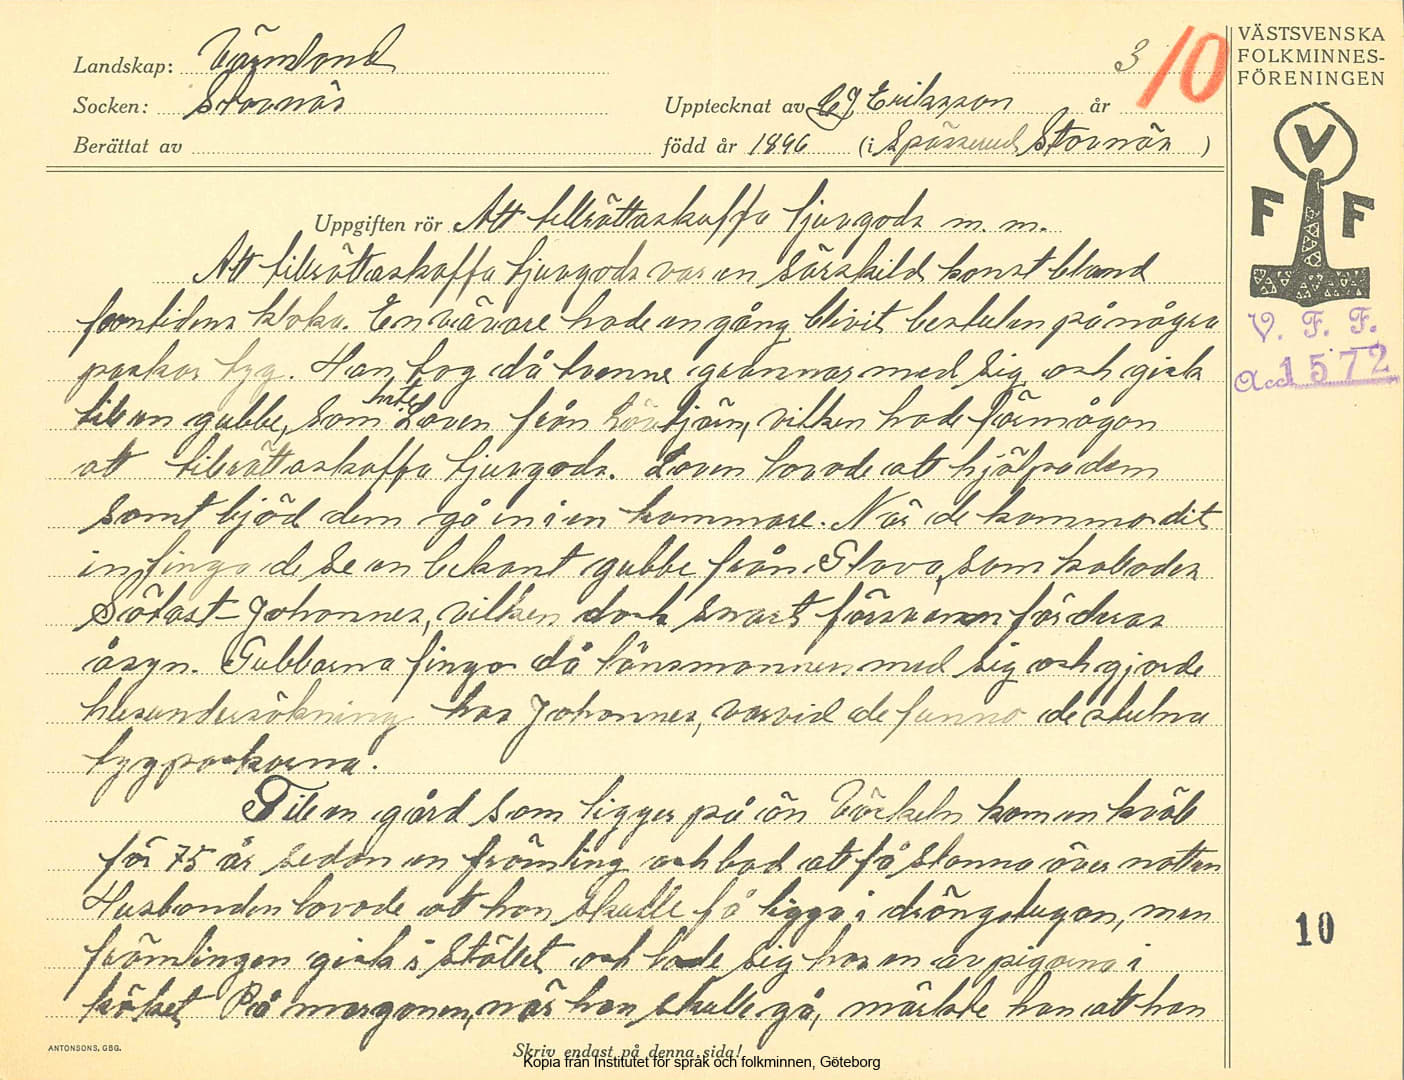 Landskap: Värmland
Socken: Stavnäs
Berättat av
3 10
Upptecknat av CJ Eriksson år
född år 1896 (i Spässerud Stavnäs )
VÄSTSVENSKA
FOLKMINNES-
FÖRENINGEN
V
F F
V. F. F.
Acc 1572
Uppgiften rör Att tillrättaskaffa tjuvgods m. m.
Att tillrättaskaffa tjuvgods var en särskild konst bland
forntidens kloka. En vävare hade en gång blivit bestulen på några
packar tyg. Han tog då tvenne grannar med sig och gick
till en gubbe, som hette Laven från tjärn, vilken hade förmågan
att tillrättaskaffa tjuvgods. Laven lovade att hjälpa dem
samt bjöd dem gå in i en kammare. När de kommo dit
in fingo de se en bekant gubbe från Glava, som kallades
Johannes, vilken dock snart försvann för deras
åsyn. Gubbarna fingo då länsmannen med sig och gjorde
husundersökning hos Johannes, varvid de funno de stulna
tygpackarna.
Till en gård som ligger på ön Värkeln kom en kväll
för 75 år sedan en främling och bad att få stanna över natten
Husbonden lovade att han skulle få ligga i drängstugan, men
främlingen gick i stället och lade sig hos en av pigorna i
köket. På morgonen, när han skulle gå, märkte han att han
10
ANTONSONS, GBG.
Skriv endast på denna sida!
Kopia från Institutet för språk och folkminnen, Göteborg